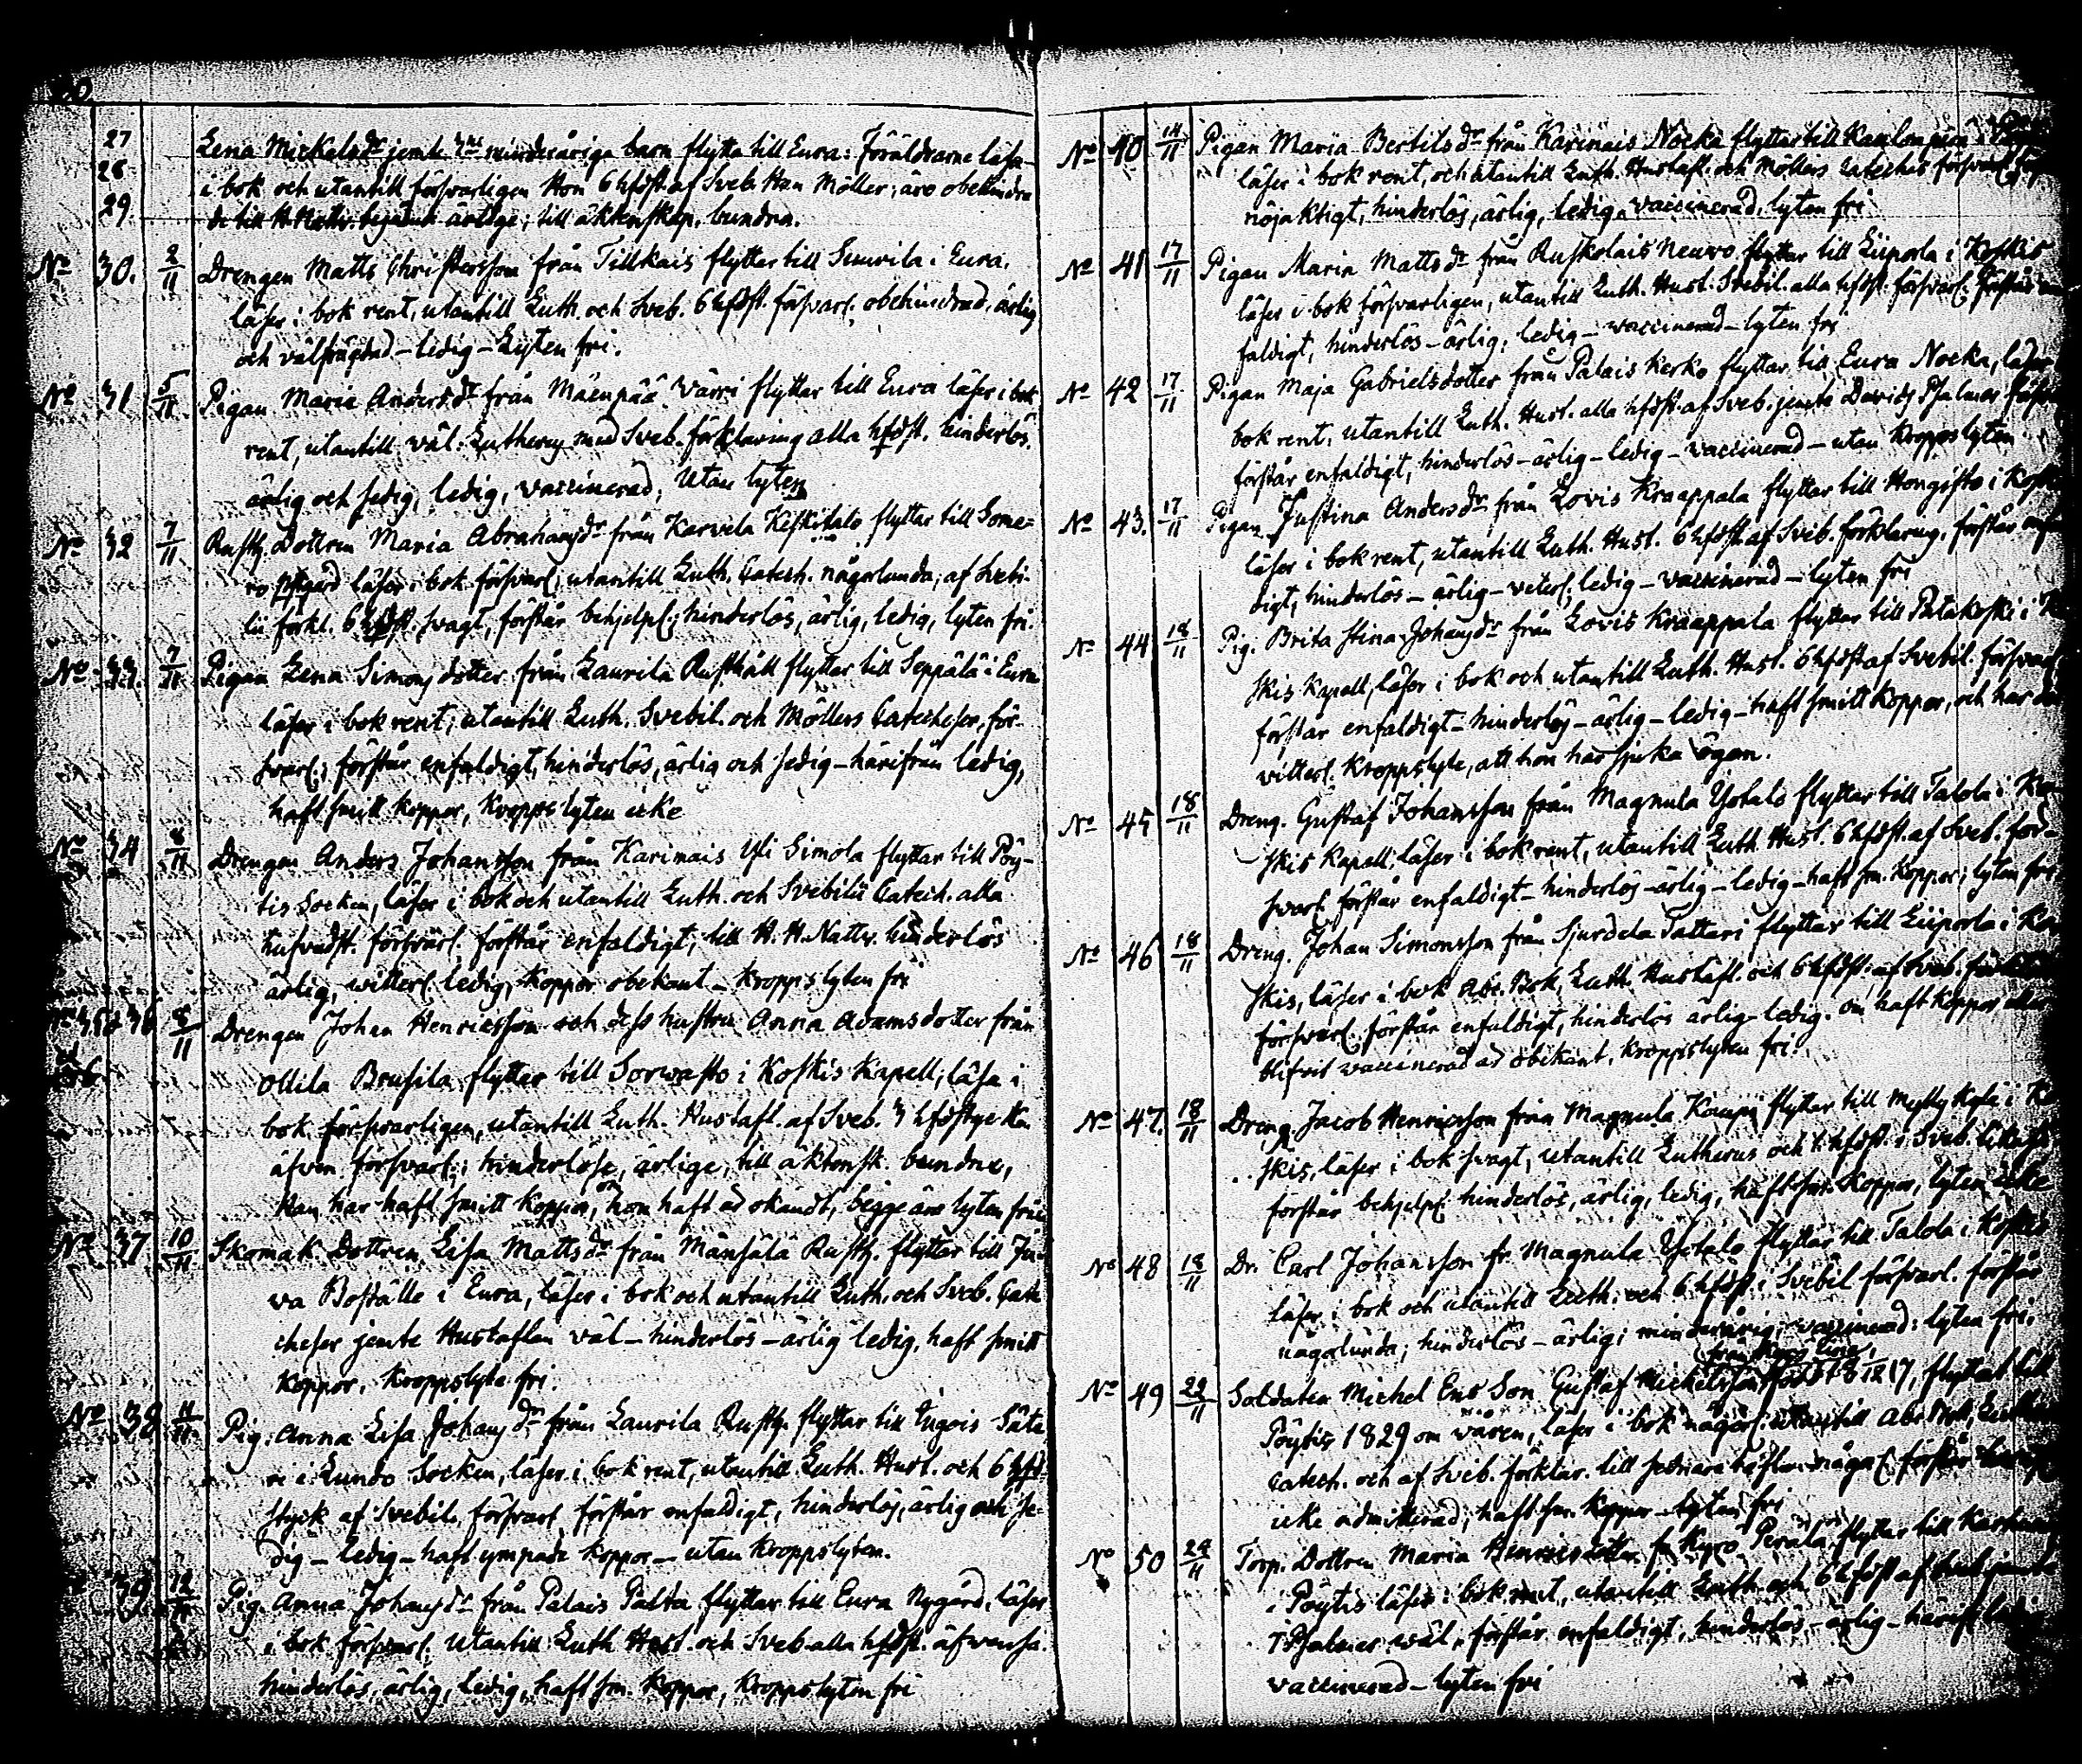 27 Lena Mickelsdr jemte 3ne minderåriga barn flytta till Eura: Föräldrarne läsa
28 i bok och utantill försvarligen Hon 6 hfdst. af Sveb. Han Möller; äro obehindra
29. de till H. Nattv. begåend ärlige; till äktenskap bundna.
No 30. 2/11 Drengen Matts Christersson från Tillkais flyttar till Suurila i Eura.
läser i bok rent, utantill Luth. och Sveb. 6 hfdst. försvarl. obehindrad, ärlig
och välfrägdad – ledig – Lyten fri.
No 31 5/11 Pigan Maria Andersdr från Mäenpää Värri flyttar till Eura läser i bok
rent, utantill väl. Lutherus med Sveb. förklaring alla hfdst. hinderlös.
ärlig och sedig, ledig, vaccinerad, utan lyten
No 32 7/11 Rusth. Dottren Maria Abrahamsdr från Karvela Keskitalo flyttar till Some=
ro läser i bok försvarl. utantill Luth. Catech. någorlunda; af Svebi-
lii förkl. 6 hfdst. svagt, förstår behjelpl.; hinderlös, ärlig, ledig, lyten fri.
No 33. 7/11 Pigan Lena Simonsdotter från Laurila Rusthåll flyttar till Seppälä i Eura
läser i bok rent, utantill Luth. Svebil. och Möllers Catecheser, för-
svarl.; förstår enfaldigt, hinderlös, ärlig och sedig – härifrån ledig,
haft smitt koppor, Kroppslyten icke
No 34 8/11 Drengen Anders Johansson från Karinais Yli Simola flyttar till Pöy-
tis Socken, läser i bok och utantill Luth. och Svebilii Catech. alla
hufvudst. försvarl. förstår enfaldigt; till H. H. Nattv. hinderlös
ärlig, witterl. ledig, Koppor obekant – Kroppslyten fri
No 35 & 36 8/11 Drengen Johan Henricsson och dess hustru Anna Adamsdotter från
Ollila Brusila flyttar till Sorvasto i Koskis Kapell; läsa i
bok försvarligen, utantill Luth. Hustafl. af Sveb. 3 hfdstycken
äfven försvarl.; hinderlöse, ärlige, till äktensk. bundne,
Han har haft smitt koppor, om hon haft ad okändt, begge äro lyten frie
No 37 10/11 Skomak. Dottren Lisa Mattsdr från Mänsälä Rusth. flyttar till Ju-
va Boställe i Eura, läser i bok och utantill Luth. och Sveb. Cate
cheser jemte Hustaflan väl – hinderlös – ärlig ledig, haft smitt
koppor, Kroppslyte fri.
No 38 11/11 Pig. Anna Lisa Johansdr från Laurila Rusth. flyttar till Ingois Säte
ri i Lundo Socken, läser i bok rent, utantill Luth. Hust. och 6 hfd-
styck af Svebil. försvarl. förstår enfaldigt, hinderlös, ärlig och se-
dig – ledig – haft ympade koppor – utan Kroppslyten.
39 12/11 Pig. Anna Johansdr från Palais Palta flyttar till Eura Nygård, läser
i bok försvarl. utantill Luth. Hust. och Sveb. alla hfdst. äfvenså.
hinderlös, ärlig, ledig, haft sm. koppor, Kroppslyten fri
No 40 14/11 Pigan Maria Bertilsdr från Karinais Nocka flyttar till
läser i bok rent, och utantill Luth. Hustafl. och Möllers Cateches försvarl.
nöjaktigt, hinderlös, ärlig, ledig vaccinerad, lyten fri
No 41 17/11 Pigan Maria Mattsdr från Ruskolais Neuvo flyttar till Liiporla i Koskis
läser i bok försvarligen, utantill Luth. Hust. Svebil. alla hfdst. försvarl. förstår en
faldigt, hinderlös – ärlig, ledig – vaccinerad – lyten fri
No 42 17/11 Pigan Maja Gabrielsdotter från Palais Kerko flyttar till Eura Nocka, läser
bok rent, utantill Luth. Hust. alla hfdst. af Sveb. jemte Davids Psalmer
förstår enfaldigt, hinderlös – ärlig – ledig – vaccinerad – utan Kroppslyten
No 43. 17/11 Pigan Justina Andersdr från Lovis Kraappala flyttar till Hongisto i
läser i bok rent, utantill Luth. Hust. 6 hfdst. af Sveb. förklaring, förstår enfal
digt, hinderlös – ärlig – veterl. ledig – vaccinerad – lyten fri
No 44 18/11 Pig. Brita Stina Johansdr från Lovis Kraappala flyttar till Patakoski i
skis Kapell, läser i bok och utantill Luth. Hust. 6 hfdst. af Svebil. försvar
förstår enfaldigt – hinderlös – ärlig – ledig – haft smitt koppor, och har det
vitterl. kroppslyte, att hon har sjuka ögon.
No 45 18/11 Dreng. Gustaf Johansson från Magnula Yotalo flyttar till Talola i Ko
skis Kapell; läser i bok rent, utantill Luth. Hust. 6 hfdst. af Sveb. för-
svarl. förstår enfaldigt – hinderlös – ärlig – ledig – haft sm. Koppor; lyten fri
No 46 18/11 Dreng. Johan Simonsson från Sjurdela Tattari flyttar till Liiporla i Ko
skis, läser i bok Abc. Bok, Luth. Hustafl. och 6 hfdst. af Sveb.
försvarl. förstår enfaldigt, hinderlös ärlig – ledig. om haft koppor eller
blifvit vaccinerad ad obekant. Kroppslyten fri.
No 47. 18/11 Dreng. Jacob Henricsson från Magnula Kaupi flyttar till Myllykylä i Ko
skis, läser i bok svagt, utantill Lutherus och hfdst. i Sveb.
förstår behjelpl. hinderlös, ärlig, ledig, haft sm. Koppor, lyten icke
No 48 18/11 Dr. Carl Johansson fr. Magnula Yotalo flyttar till Talola i Koskis
läser i bok och utantill Luth. och 6 hfdst. i Svebil försvarl. förstår
någorlunda; hinderlös – ärlig; minderårig; vaccinerad: lyten fri.
No 49 22/11 Soldaten Michel Ens Son Gustaf Mickelsson född 18 17, flyttat till
Pöytis 1829 om våren, läser i bok någorl. utantill Abc Bok, Luth.
Catech. och af Sveb. förklar. till någorl. förstår
icke admitterad, haft sm. Koppor – lyten fri
No 50 24/11 Torp. Dottren Maria Henricsdotter fr. Kyrö Perälä flyttar till
i Pöytis läser i bok rent, utantill Luth. och 6 hfdst. af Sveb. jemte
7 Psalmer väl, förstår enfaldigt, hinderlös – ärlig – härifr. ledig
vaccinerad – lyten fri